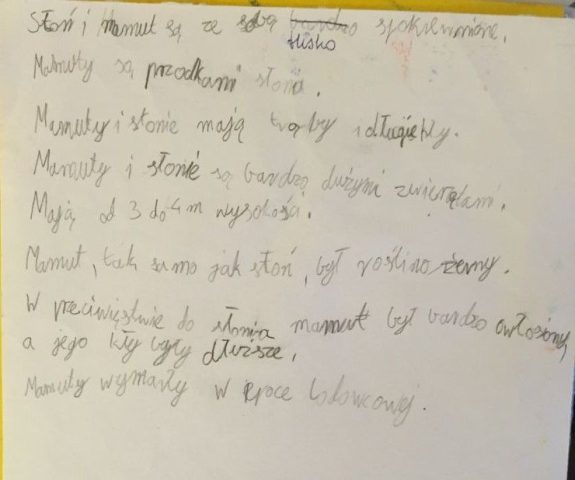 Słoń i mamut są ze sobą bardzo spokrewnione.
blisko
Mamuty są przodkami słonia.
Mamuty i słonie mają trąby i długie kły.
Mamuty i słonie są bardzo dużymi zwierzętami.
Mają od 3 do 4 m wysokości.
Mamut, tak samo jak słoń, był roślinożerny.
W przeciwięstwie do słonia mamut był bardzo owłosiony,
a jego kły były dłuższe.
Mamuty wymarły w epoce lodowcowej.